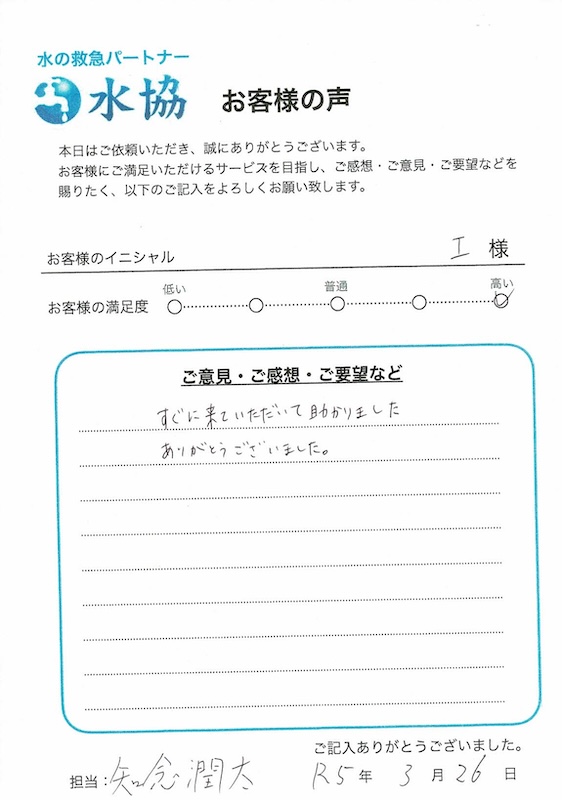 水の救急パートナー
水協 お客様の声
本日はご依頼いただき、誠にありがとうございます。
お客様にご満足いただけるサービスを目指し、ご感想・ご意見・ご要望などを
賜りたく、以下のご記入をよろしくお願い致します。
お客様のイニシャル I 様
低い 普通 高い
お客様の満足度
ご意見・ご感想・ご要望など
すぐに来ていただいて助かりました
ありがとうございました。
ご記入ありがとうございました。
担当：知念潤太 R5年 3月26日